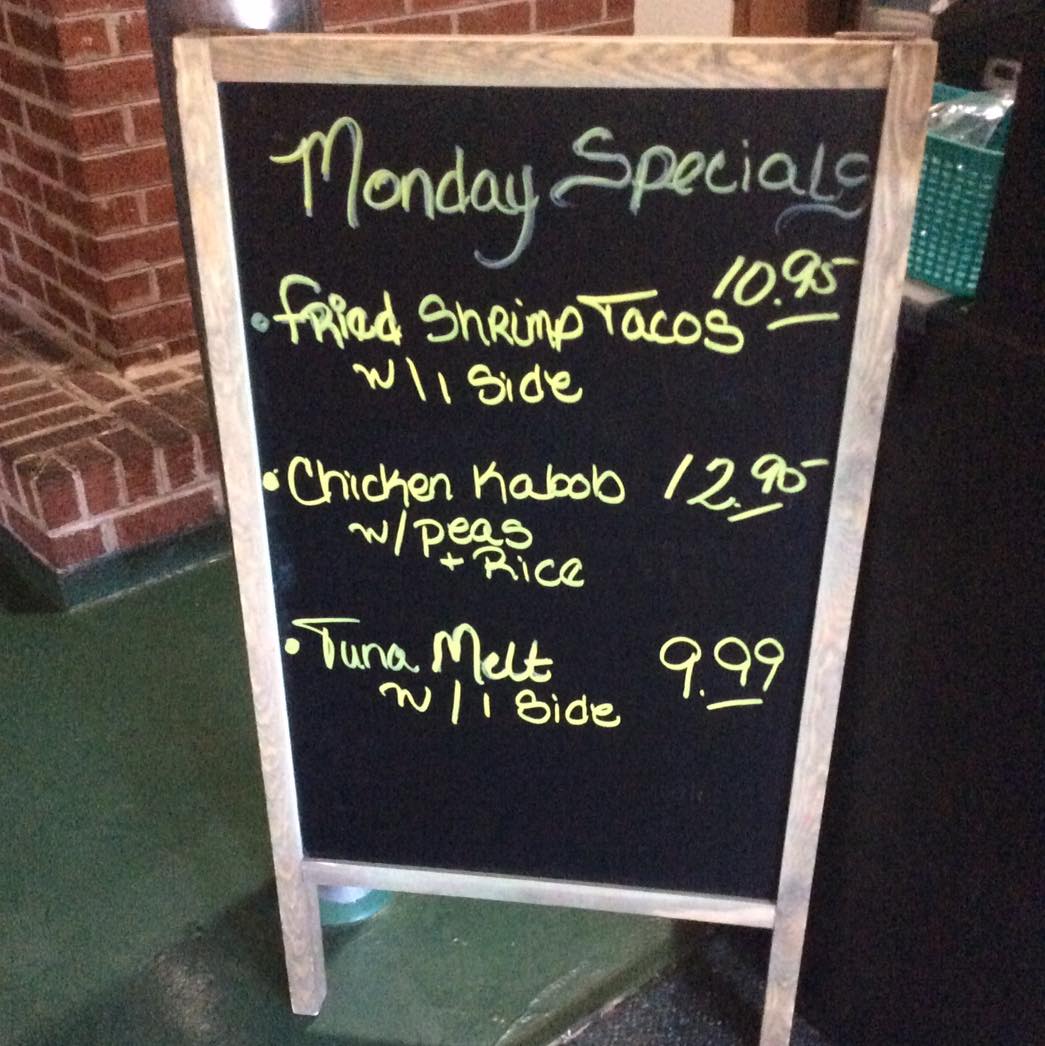 Monday Specials
• Fried Shrimp Tacos 10.95
w/1 Side
• Chicken Kabob 12.95
w/peas
+ Rice
• Tuna Melt 9.99
w/1 Side